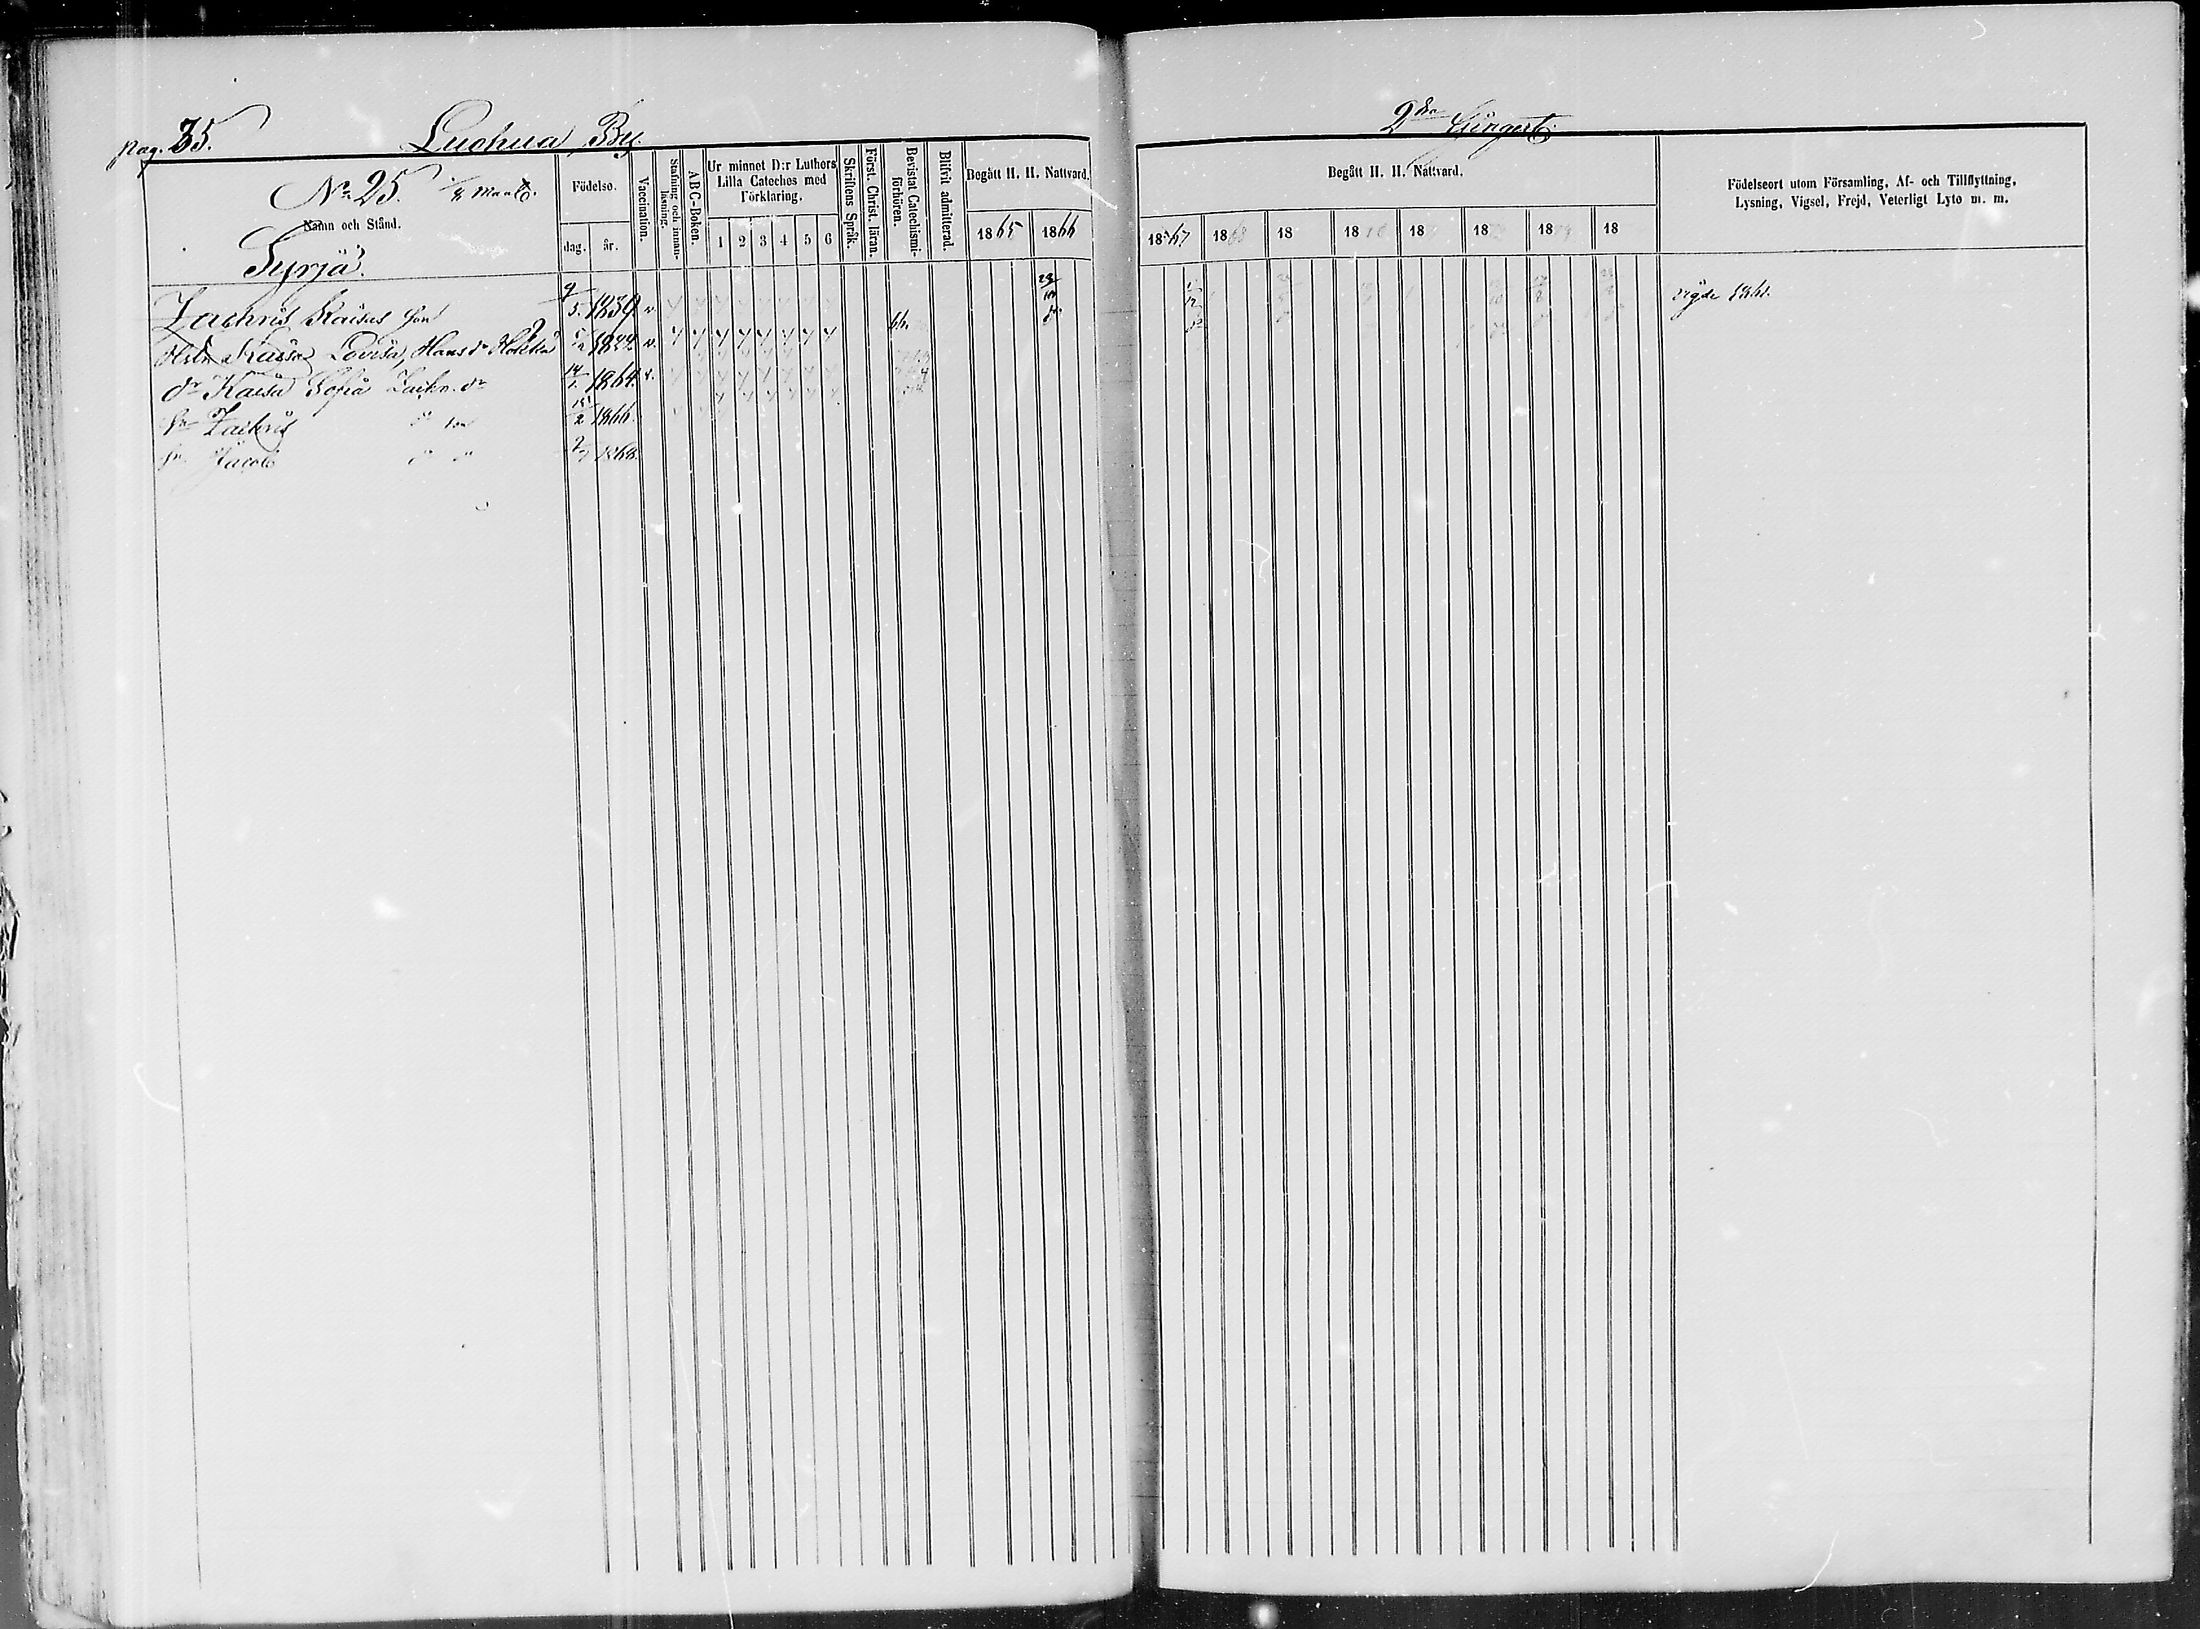 pag. 35.
Luohua By.
2dra
No 25. 1/4 Mantl.
Namn och Stånd.
Syrjä.
Födelse.
dag. år.
Vaccination.
Stafning och innan-läsning.
ABC-Boken.
Ur minnet D:r Luthers Lilla Cateches med Förklaring.
1 2 3 4 5 6
Skriftens Språk.
Först. Christ. läran.
Bevistat Catechismi-förhören.
Blifvit admitterad.
Begått H. H. Nattvard.
1865 1866
Begått H. H. Nattvard.
1867 1868 18 18 18 18 18 18
Födelseort utom Församling, Af- och Tillflyttning, Lysning, Vigsel, Frejd, Veterligt Lyte m. m.
Zachris Kaisas son 9/5. 1839 v. vigde 1861.
Kaisa Lovisa, Hans dr 1844. v.
dr Kaisa Sofia Zachr. dr 14/1. 1864. v.
sn Zachris 15/2 1866.
sn Jacob 1868.